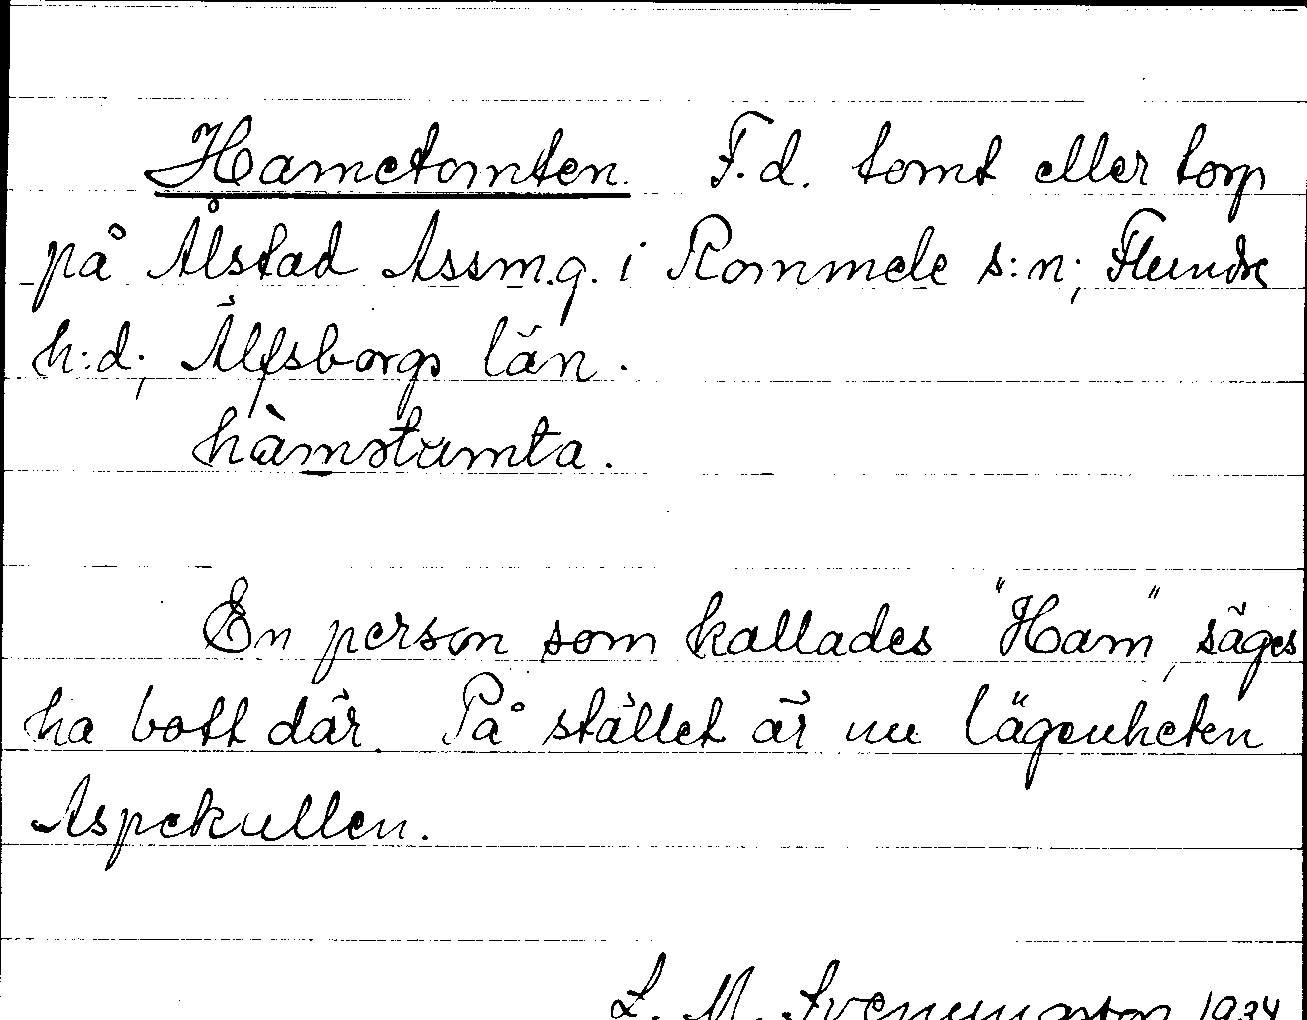 Hametomten. F.d. tomt eller torp
på Ålstad Assm.g. i Rommele s:n; Flundre
h:d; Älfsborgs län.
hàmətumta.
En person som kallades "Ham", säges
ha bott där. På stället är nu lägenheten
Aspekullen.
L. M. Svenungsson 1934